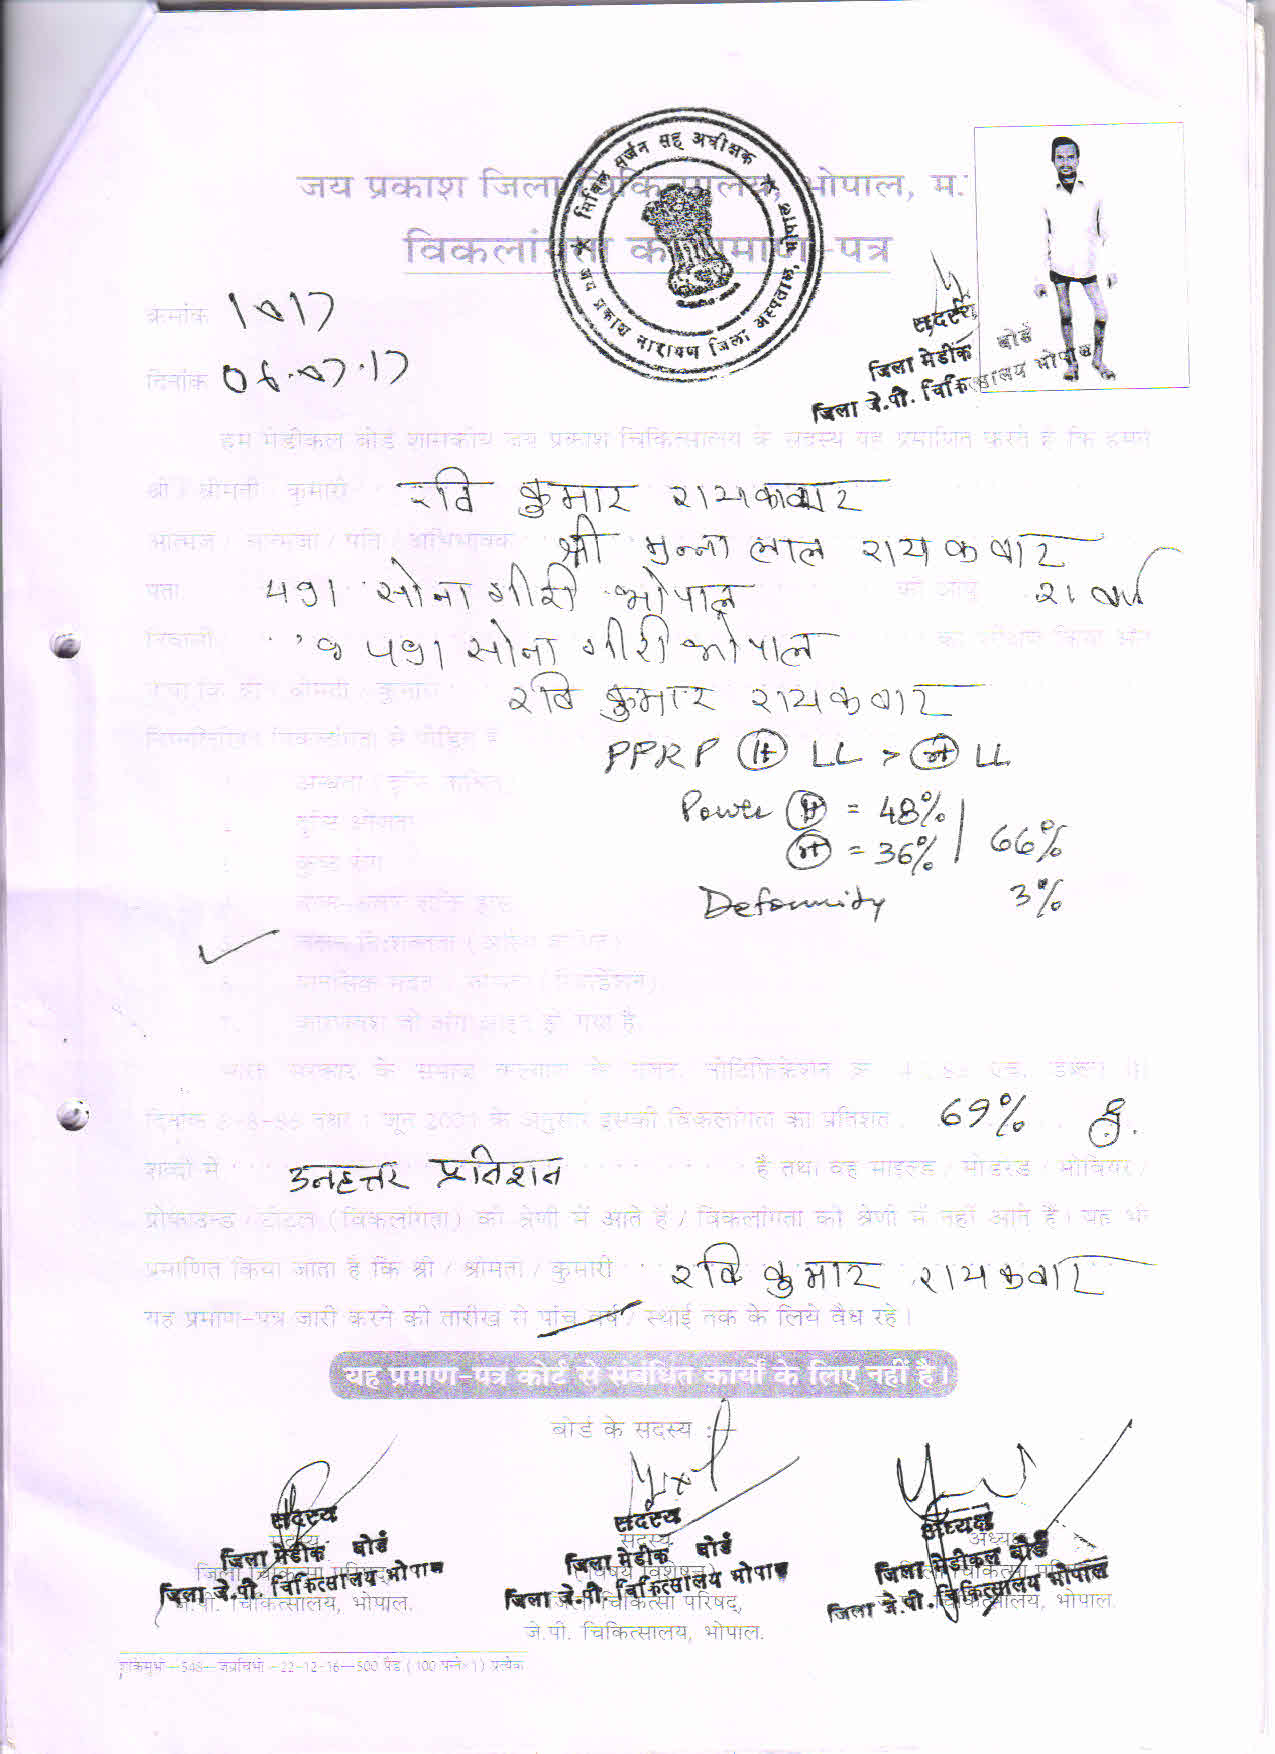 जय प्रकाश जिला चिकित्सालय, भोपाल, म.
विकलांगता का प्रमाण-पत्र
सिविल सर्जन सह अधीक्षक
जय प्रकाश नारायण जिला अस्पताल, भोपाल
क्रमांक 1017
दिनांक 06.07.17
सदस्य
जिला मेडीक बोर्ड
जिला जे.पी. चिकित्सालय भोपाल
हम मेडीकल बोर्ड शासकीय जय प्रकाश चिकित्सालय के सदस्य यह प्रमाणित करते है कि हमने
श्री / श्रीमती / कुमारी रवि कुमार रायकवार
आत्मज / आत्मजा / पति / अभिभावक श्री मुन्ना लाल रायकवार
पता 491 सोना गीरी भोपाल की आयु 21 वर्ष
निवासी 491 सोना गीरी भोपाल का परीक्षण किया और
पाया कि श्री / श्रीमती / कुमारी रवि कुमार रायकवार
निम्नलिखित विकलांगता से पीड़ित है
PPRP Lt LL > Rt LL
Power Lt = 48%
Rt = 36% 66%
Deformity 3%
कुष्ठ रोग
7. कारणवश जो अंग भंग हो गया है
भारत सरकार के समाज कल्याण के गजट नोटिफिकेशन क्र.
दिनांक 6-8-86 तथा 1 जून 2001 के अनुसार इसकी विकलांगता का प्रतिशत 69%
शब्दों में उनहत्तर प्रतिशत है तथा वह माइल्ड / मोडरेड / सीवियर /
प्रोफाउन्ड / टोटल (विकलांगता) की श्रेणी में आते हैं / विकलांगता की श्रेणी में नहीं आते हैं। यह भी
प्रमाणित किया जाता है कि श्री / श्रीमती / कुमारी रवि कुमार रायकवार
यह प्रमाण-पत्र जारी करने की तारीख से पांच वर्ष / स्थाई तक के लिये वैध रहे।
यह प्रमाण-पत्र कोर्ट से संबंधित कार्यों के लिए नहीं है।
बोर्ड के सदस्य :-
सदस्य सदस्य अध्यक्ष
जिला मेडीक बोर्ड जिला मेडीक बोर्ड जिला मेडीकल बोर्ड
जिला जे.पी. चिकित्सालय भोपाल जिला जे.पी. चिकित्सालय भोपाल जिला जे.पी. चिकित्सालय भोपाल
सदस्य सदस्य अध्यक्ष
जिला चिकित्सा परिषद, (विषय विशेषज्ञ) जिला चिकित्सा परिषद,
जे.पी. चिकित्सालय, भोपाल. जिला चिकित्सा परिषद, जे.पी. चिकित्सालय, भोपाल.
जे.पी. चिकित्सालय, भोपाल.
शाकेमुभो—548—जप्रचिभो—22-12-16—500 पैड (100 पन्ने×1) प्रत्येक